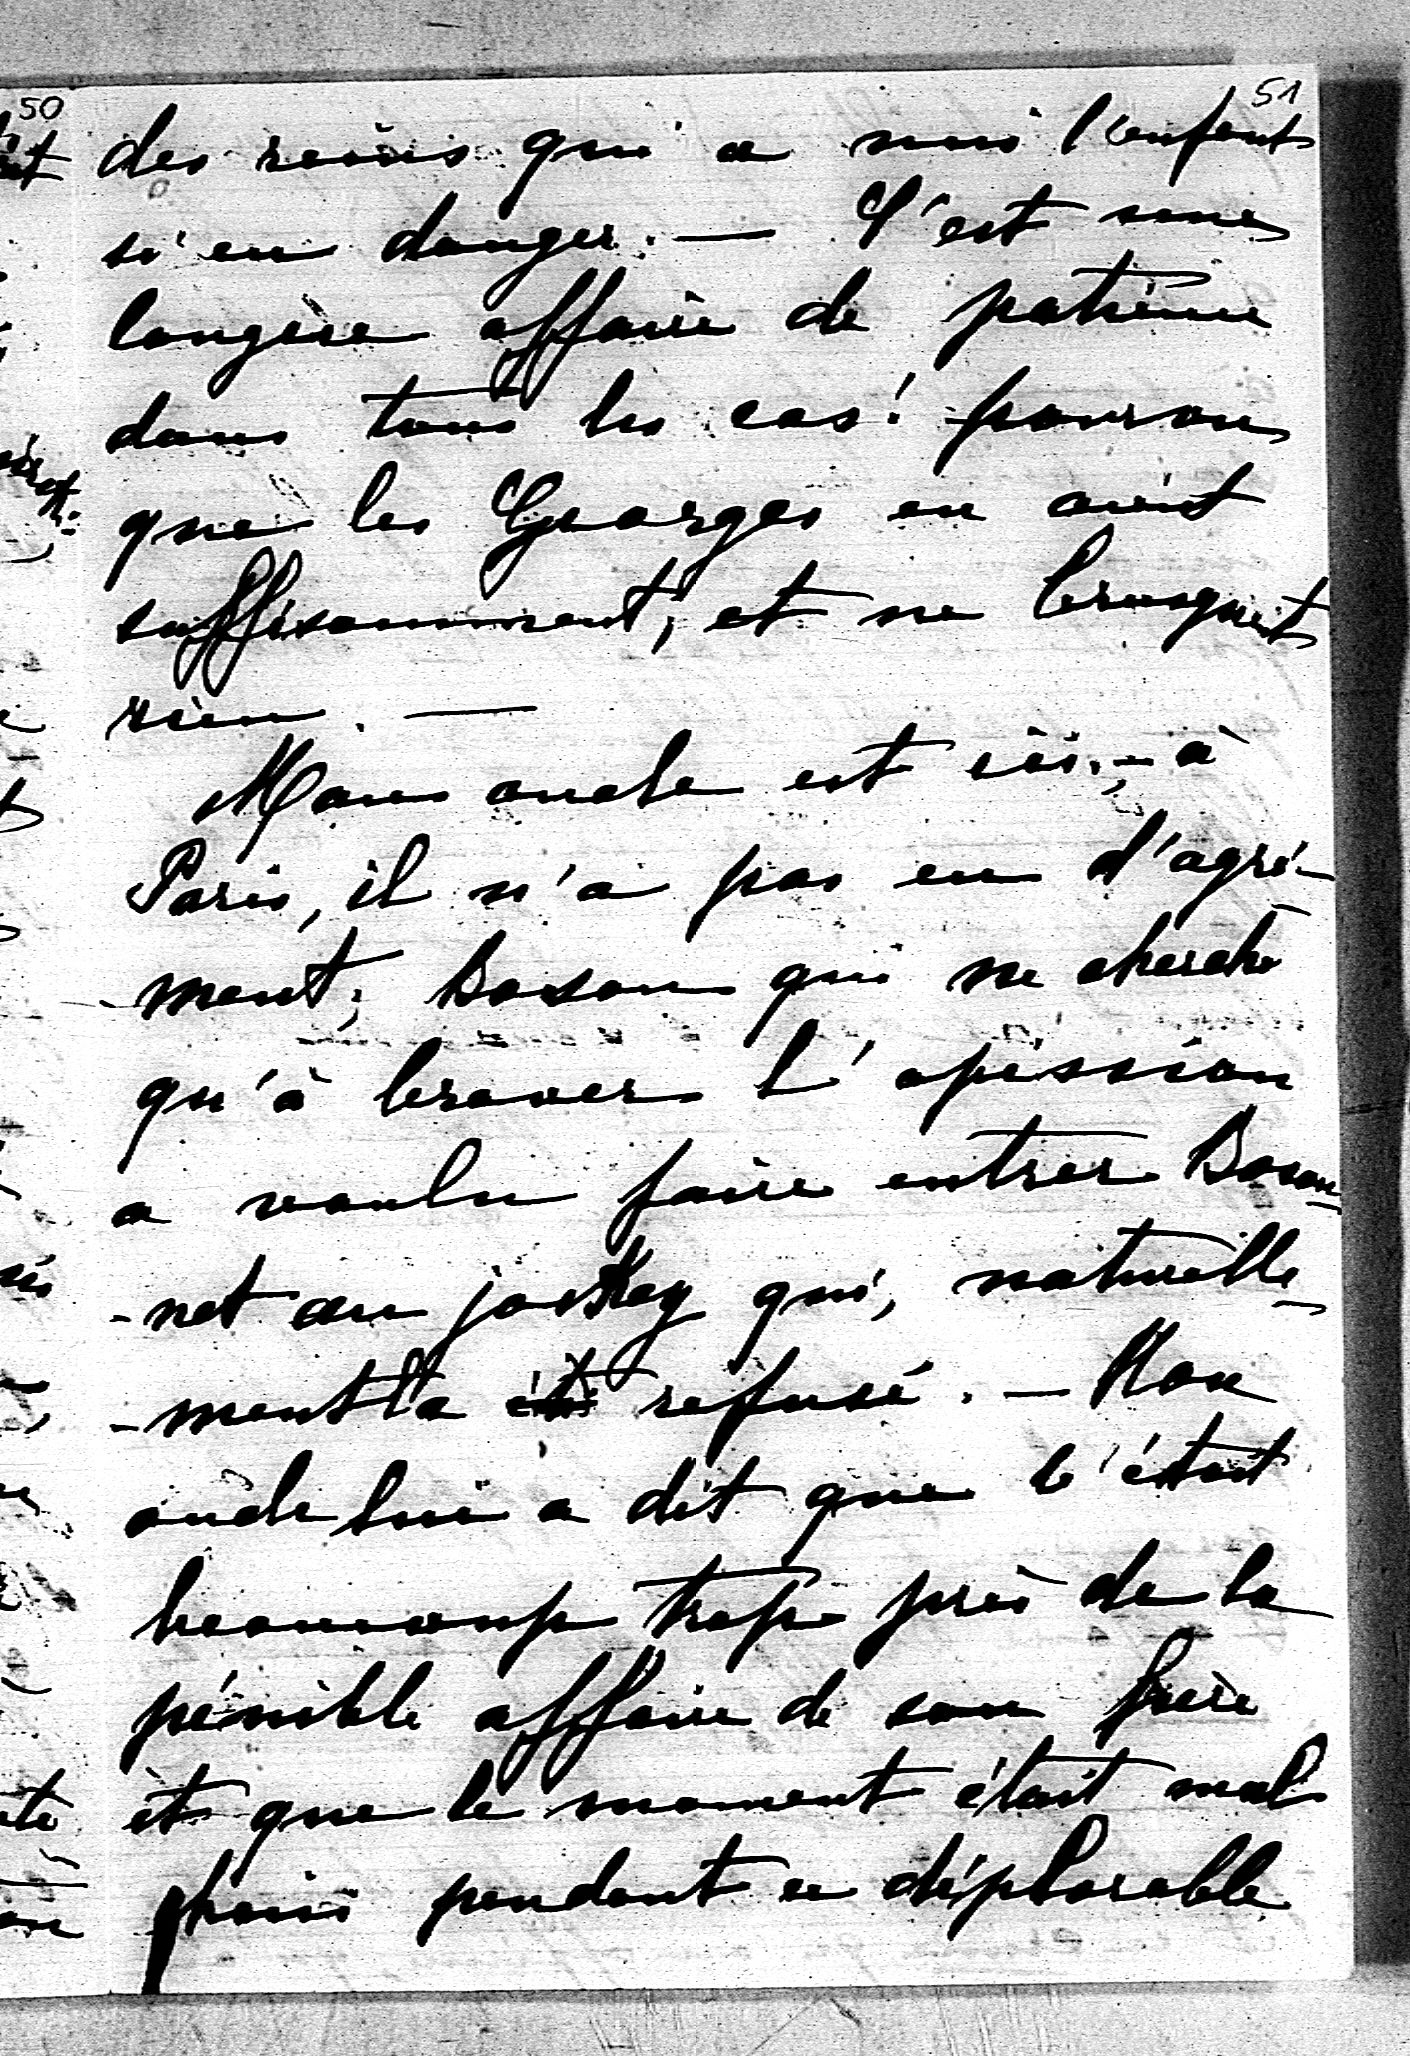 50
51
des reins qui a mis l'enfant
si en danger. — C'est une
longue affaire de patience
dans tous les cas! pourvu
que les Georges en aient
suffisamment, et ne brusquent
rien. —
Mon oncle est ici, – à
Paris, il n'a pas eu d'agré-
-ment; Boson qui ne cherche
qu'à braver l'opinion
a voulu faire entrer Boson
-net au jockey qui, naturelle-
-ment l'a refusé. — Mon
oncle lui a dit que c'était
beaucoup trop près de la
pénible affaire de son frère
et que le moment était mal
choisi pendant ce déplorable